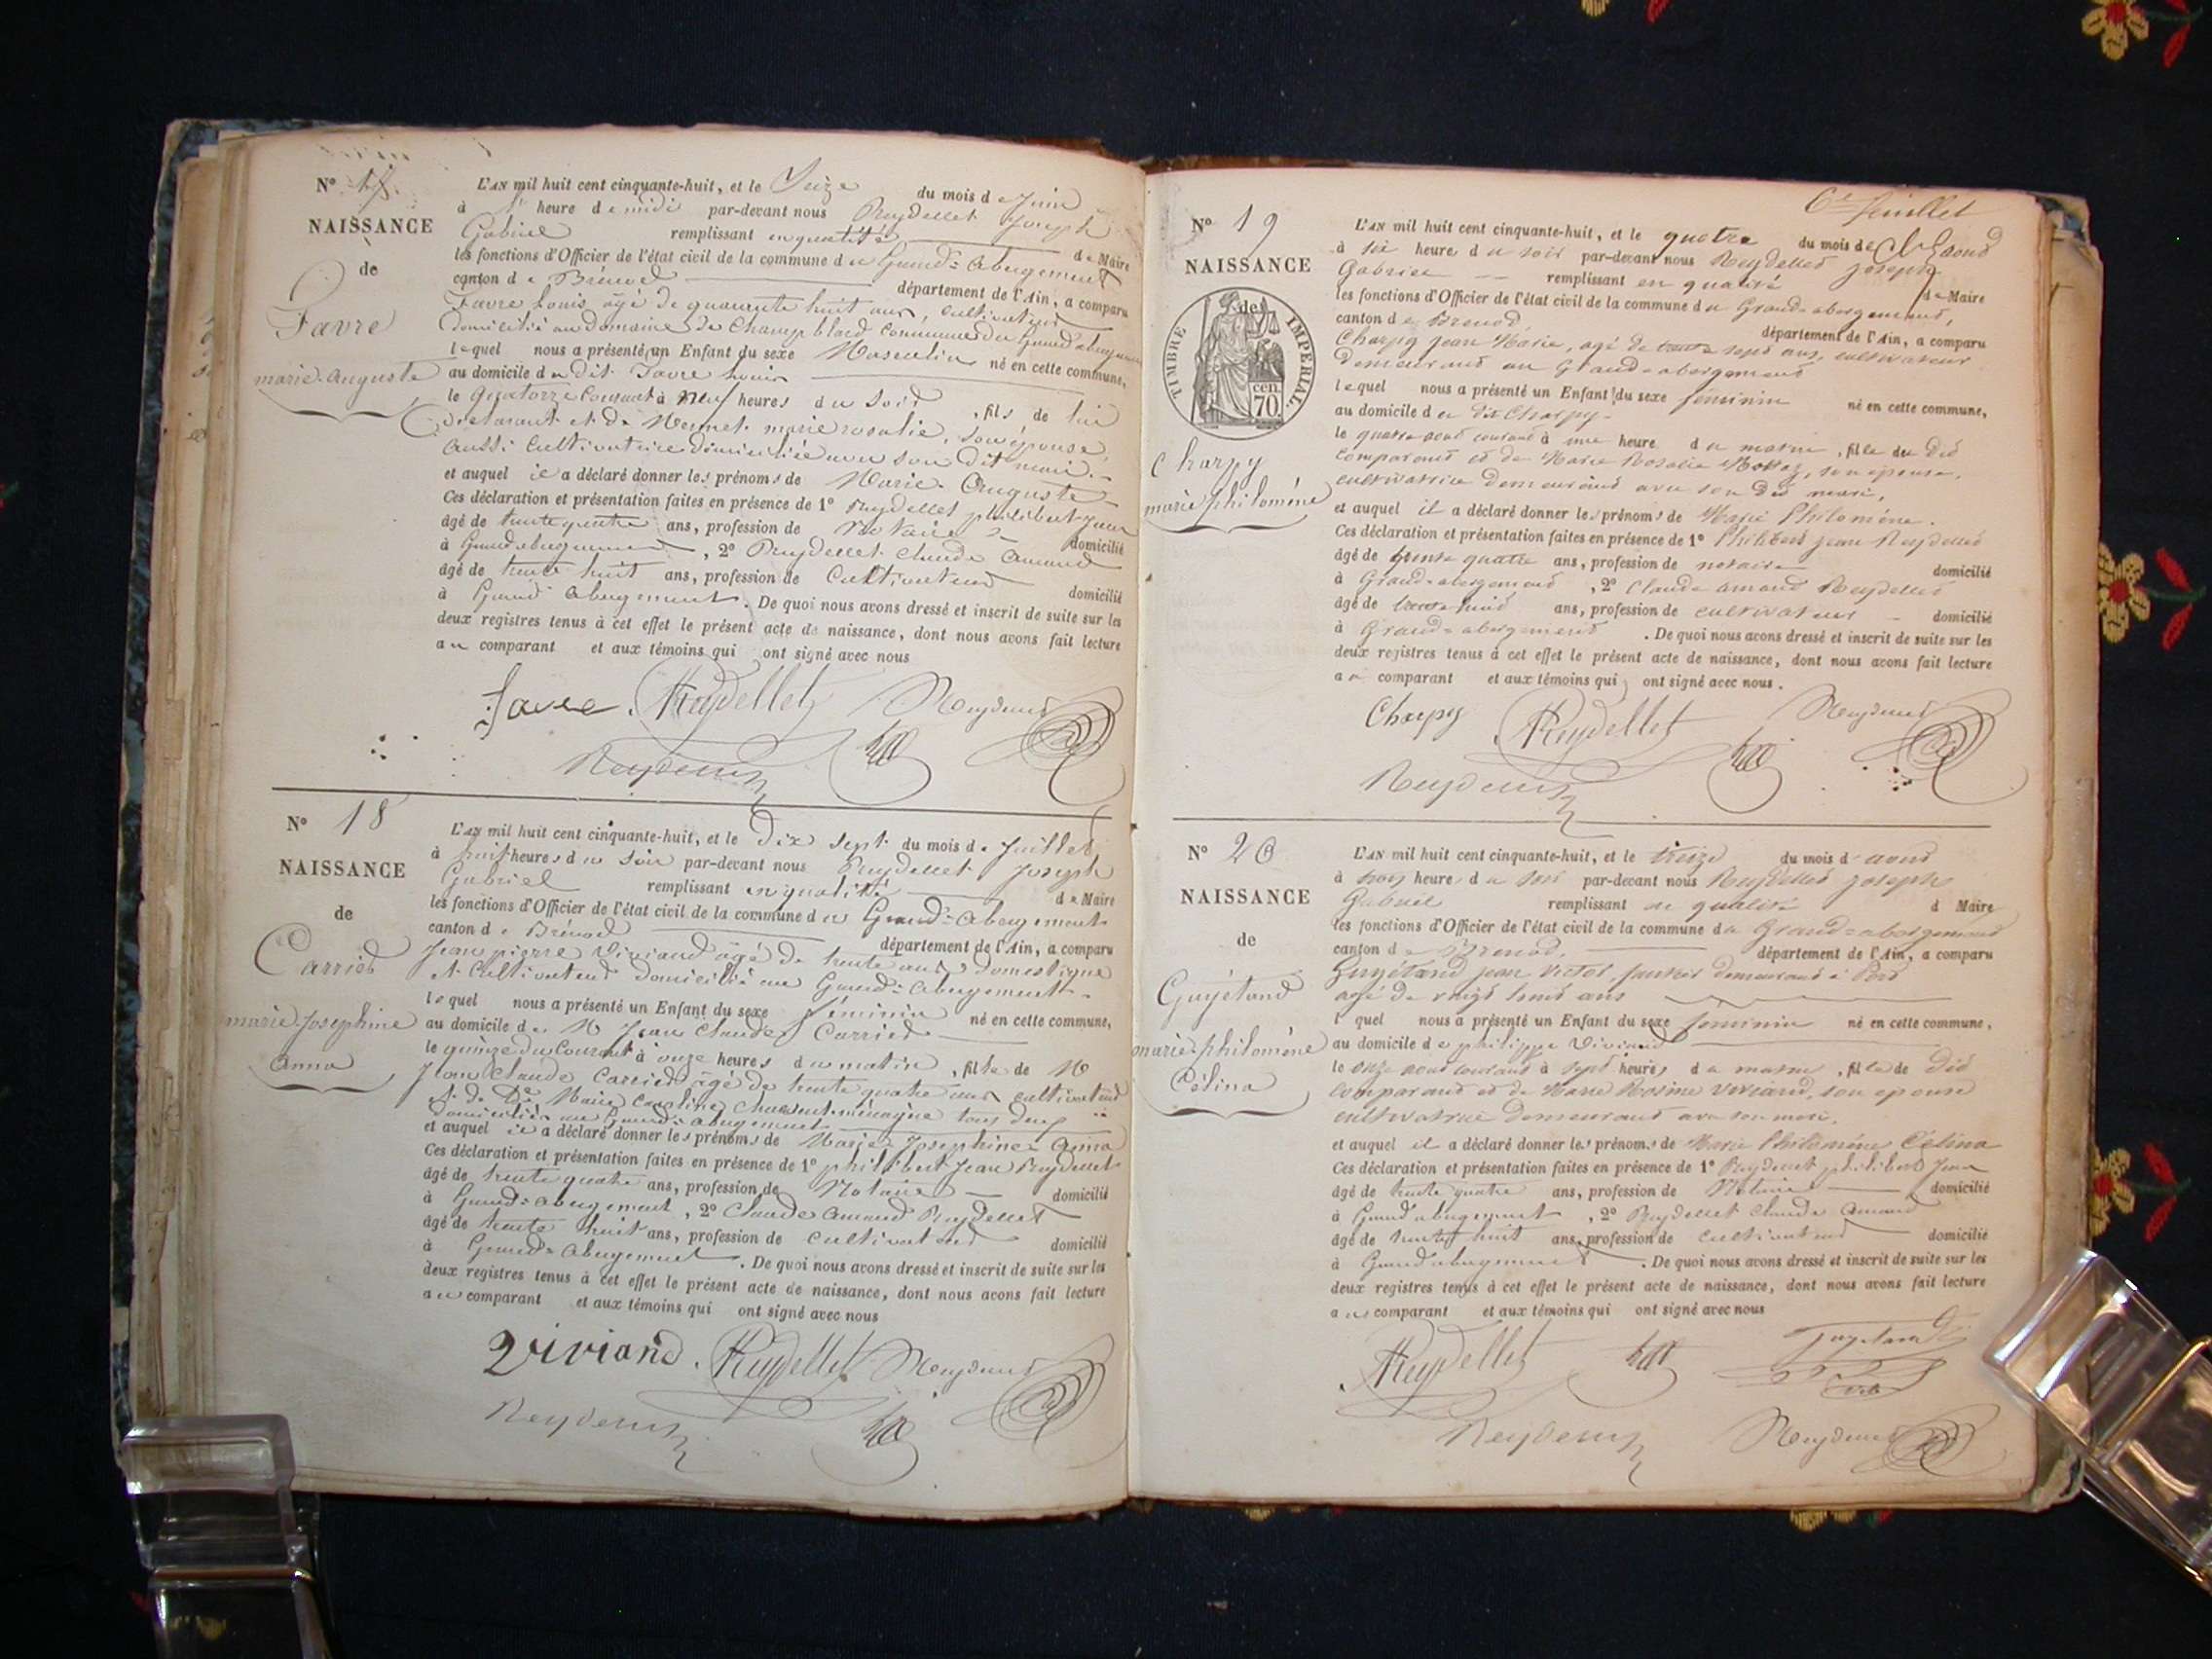 N° 17
NAISSANCE
de
Favre
marie-auguste
L'AN mil huit cent cinquante-huit, et le Seize du mois de Juin
à heure de midi par-devant nous Reydellet Joseph
Gabriel remplissant en qualité de Maire
les fonctions d'Officier de l'état civil de la commune du Grand-Abergement
canton de Brénod département de l'Ain, a comparu
Favre Louis âgé de quarante huit ans, cultivateur
domicilié au domaine de Champ blard commune du Grand abergement
lequel nous a présenté un Enfant du sexe Masculin né en cette commune,
au domicile du dit Favre Louis
le quatorze Courant à neuf heures du Soir, fils de lui
déclarant et de marie rosalie, son épouse,
aussi cultivatrice domiciliée avec son dit mari.
et auquel il a déclaré donner les prénoms de Marie-Auguste
Ces déclaration et présentation faites en présence de 1° Reydellet philibert Jean
âgé de trente quatre ans, profession de Notaire domicilié
à Grand abergement, 2° Reydellet Claude Amand
âgé de trente huit ans, profession de Cultivateur domicilié
à Grand abergement. De quoi nous avons dressé et inscrit de suite sur les
deux registres tenus à cet effet le présent acte de naissance, dont nous avons fait lecture
au comparant et aux témoins qui ont signé avec nous
favre Reydellet
N° 18
NAISSANCE
de
Carrier
marie-Josephine
anna
L'AN mil huit cent cinquante-huit, et le Dix sept du mois de Juillet
à huit heures du soir par-devant nous Reydellet Joseph
Gabriel remplissant en qualité de Maire
les fonctions d'Officier de l'état civil de la commune du Grand-Abergement
canton de Brénod département de l'Ain, a comparu
Jean pierre Viviand âgé de trente ans domestique
et Cultivateur domicilié au Grand-Abergement
lequel nous a présenté un Enfant du sexe féminin né en cette commune,
au domicile de M Jean Claude Carrier
le quinze du Courant à onze heures du matin, fille de M
Jean Claude Carrier âgé de trente quatre ans cultivateur
et de De Marie Caroline ménagère tous deux
domiciliés au Grand-abergement
et auquel il a déclaré donner les prénoms de Marie-Josephine-Anna
Ces déclaration et présentation faites en présence de 1° philibert Jean Reydellet
âgé de trente quatre ans, profession de Notaire domicilié
à Grand-abergement, 2° Claude Amand Reydellet
âgé de trente huit ans, profession de cultivateur domicilié
à Grand-Abergement. De quoi nous avons dressé et inscrit de suite sur les
deux registres tenus à cet effet le présent acte de naissance, dont nous avons fait lecture
au comparant et aux témoins qui ont signé avec nous
Viviand. Reydellet
6e feuillet
N° 19
NAISSANCE
de
TIMBRE IMPERIAL
70 cen.
Charpy
marie philoméne
L'AN mil huit cent cinquante-huit, et le quatre du mois de
à six heure du soir par-devant nous Reydellet Joseph
Gabriel remplissant en qualité de Maire
les fonctions d'Officier de l'état civil de la commune du Grand-abergement,
canton de Brenod département de l'Ain, a comparu
Charpy jean Marie, agé de trente sept ans, cultivateur
demeurant au Grand-abergement
lequel nous a présenté un Enfant du sexe féminin né en cette commune,
au domicile du dit Charpy
le quatre aout courant à une heure du matin, fille du dit
comparant et de Marie Rosalie, son épouse,
cultivatrice demeurant avec son dit mari,
et auquel il a déclaré donner les prénoms de Marie Philoméne.
Ces déclaration et présentation faites en présence de 1° Philibert jean Reydellet
âgé de trente quatre ans, profession de notaire domicilié
à Grand-abergement, 2° Claude amand Reydellet
âgé de trente huit ans, profession de cultivateur domicilié
à Grand-abergement. De quoi nous avons dressé et inscrit de suite sur les
deux registres tenus à cet effet le présent acte de naissance, dont nous avons fait lecture
au comparant et aux témoins qui ont signé avec nous.
Charpy Reydellet
N° 20
NAISSANCE
de
Guyétand
marie-philoméne
Célina
L'AN mil huit cent cinquante-huit, et le treize du mois d'aout
à trois heure du soir par-devant nous Reydellet joseph
Gabriel remplissant en qualité d Maire
les fonctions d'Officier de l'état civil de la commune du Grand-abergement
canton de Brenod. département de l'Ain, a comparu
Guyétand jean Victor, demeurant à
agé de vingt huit ans
l quel nous a présenté un Enfant du sexe féminin né en cette commune,
au domicile de philippe Viviand
le onze aout courant à sept heures du matin, fille de dit
comparant et de Marie Rosine Viviand, son épouse
cultivatrice demeurant avec son mari.
et auquel il a déclaré donner les prénoms de Marie Philoméne Célina
Ces déclaration et présentation faites en présence de 1° Reydellet philibert Jean
âgé de trente quatre ans, profession de Notaire domicilié
à Grand abergement, 2° Reydellet Claude Amand
âgé de trente huit ans, profession de Cultivateur domicilié
à Grand abergement. De quoi nous avons dressé et inscrit de suite sur les
deux registres tenus à cet effet le présent acte de naissance, dont nous avons fait lecture
au comparant et aux témoins qui ont signé avec nous
Reydellet